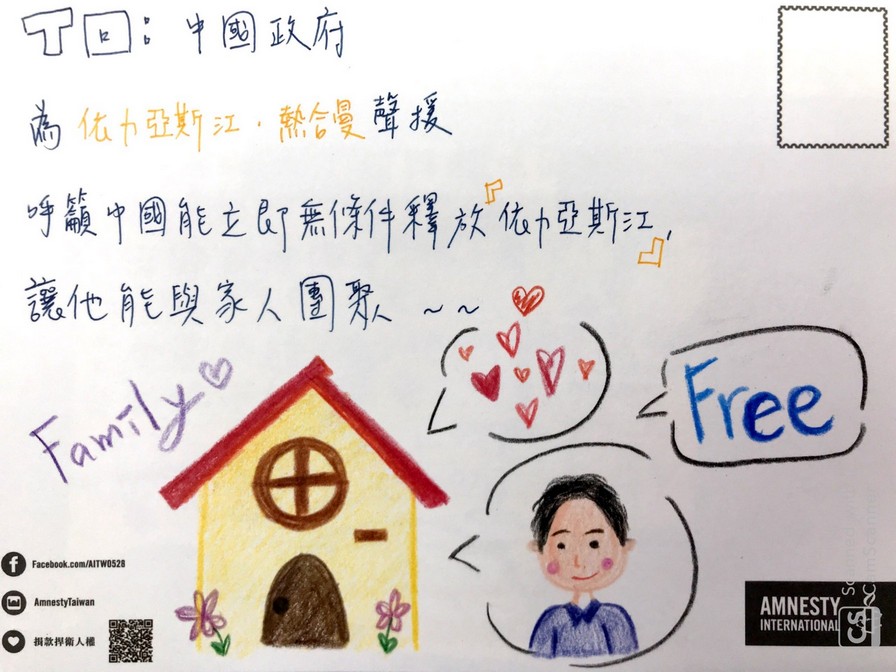 TO: 中國政府
為 依力亞斯江·熱合曼 聲援
呼籲中國能立即無條件釋放『依力亞斯江』,
讓他能與家人團聚 ~ ~
Family
Free
Facebook.com/AITW0528
AmnestyTaiwan
捐款捍衛人權
AMNESTY
INTERNATIONAL
CS